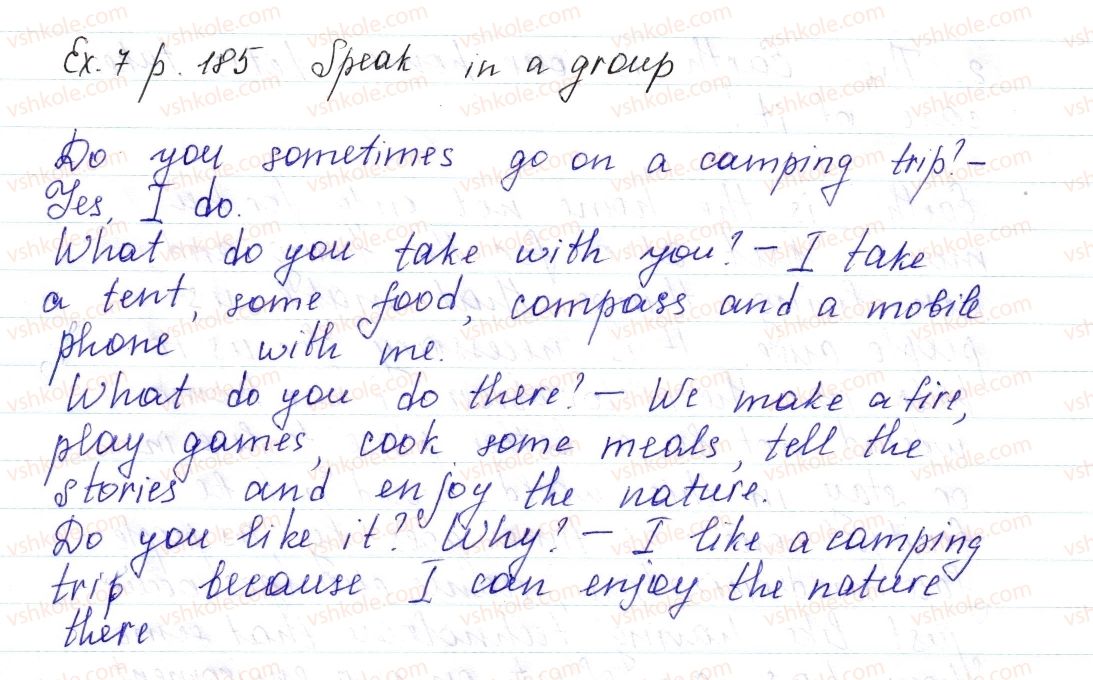 Ex. 7 p. 185 Speak in a group
Do you sometimes go on a camping trip? –
Yes, I do.
What do you take with you? – I take
a tent, some food, compass and a mobile
phone with me.
What do you do there? – We make a fire,
play games, cook some meals, tell the
stories and enjoy the nature.
Do you like it? Why? – I like a camping
trip because I can enjoy the nature
there